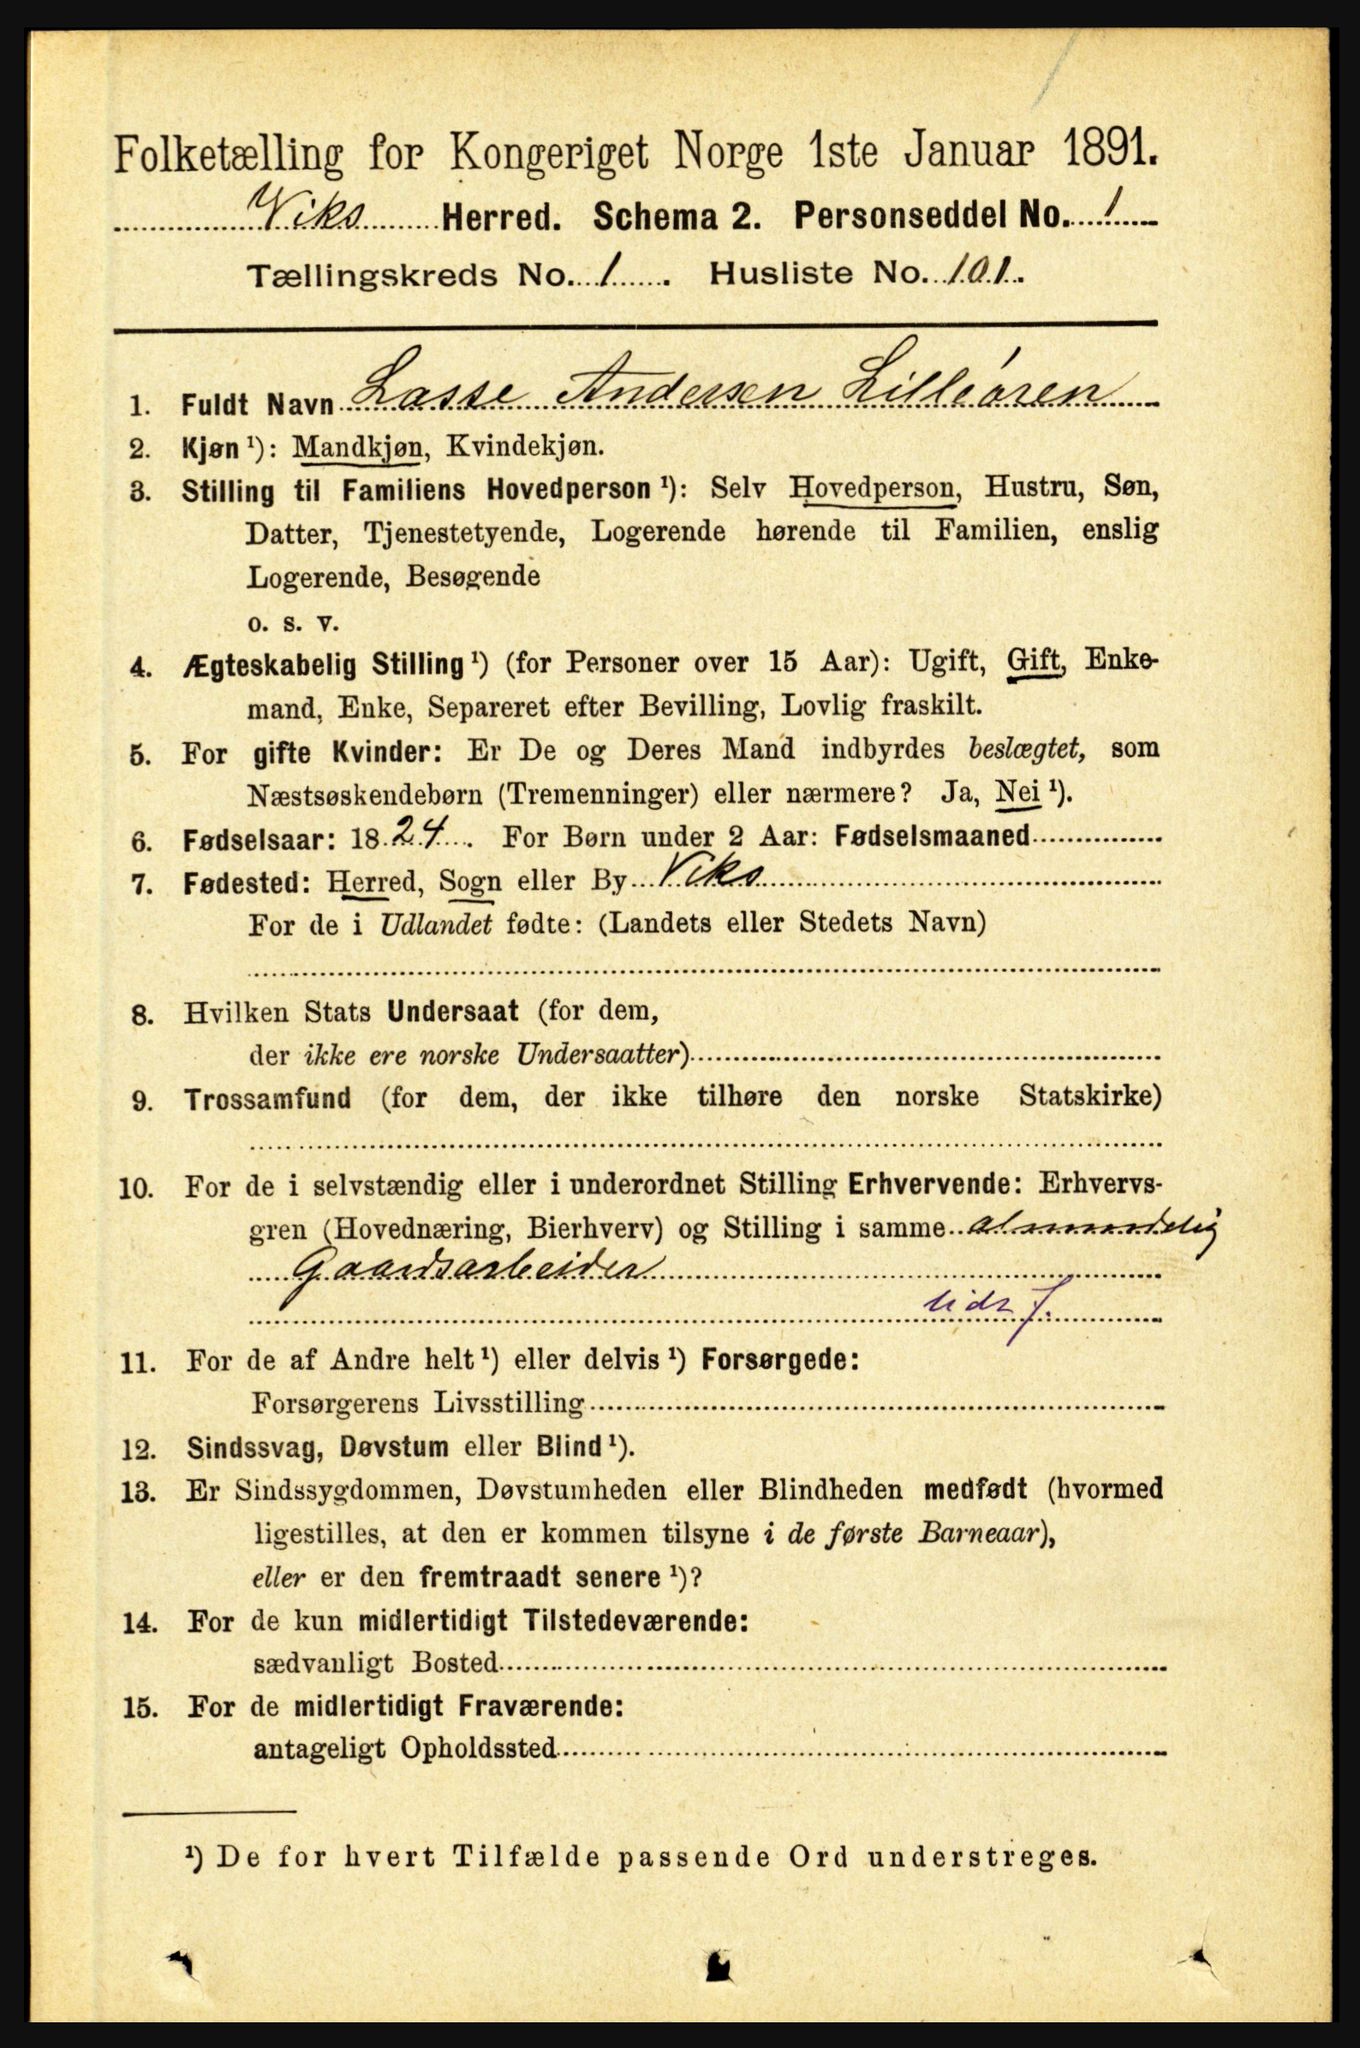 Folketælling for Kongeriget Norge 1ste Januar 1891.
Viks Herred. Schema 2. Personseddel No. 1
Tællingskreds No. 1. Husliste No. 101.
1. Fuldt Navn Lasse Andersen Lilleøren
2. Kjøn ¹): Mandkjøn, Kvindekjøn.
3. Stilling til Familiens Hovedperson ¹): Selv Hovedperson, Hustru, Søn,
Datter, Tjenestetyende, Logerende hørende til Familien, enslig
Logerende, Besøgende
o. s. v.
4. Ægteskabelig Stilling ¹) (for Personer over 15 Aar): Ugift, Gift, Enke-
mand, Enke, Separeret efter Bevilling, Lovlig fraskilt.
5. For gifte Kvinder: Er De og Deres Mand indbyrdes beslægtet, som
Næstsøskendebørn (Tremenninger) eller nærmere? Ja, Nei ¹).
6. Fødselsaar: 1824. For Børn under 2 Aar: Fødselsmaaned
7. Fødested: Herred, Sogn eller By Viks
For de i Udlandet fødte: (Landets eller Stedets Navn)
8. Hvilken Stats Undersaat (for dem,
der ikke ere norske Undersaatter)
9. Trossamfund (for dem, der ikke tilhøre den norske Statskirke)
10. For de i selvstændig eller i underordnet Stilling Erhvervende: Erhvervs-
gren (Hovednæring, Bierhverv) og Stilling i samme almindelig
Gaardsarbeider
11. For de af Andre helt ¹) eller delvis ¹) Forsørgede:
Forsørgerens Livsstilling
12. Sindssvag, Døvstum eller Blind ¹).
13. Er Sindssygdommen, Døvstumheden eller Blindheden medfødt (hvormed
ligestilles, at den er kommen tilsyne i de første Barneaar),
eller er den fremtraadt senere ¹)?
14. For de kun midlertidigt Tilstedeværende:
sædvanligt Bosted
15. For de midlertidigt Fraværende:
antageligt Opholdssted
¹) De for hvert Tilfælde passende Ord understreges.